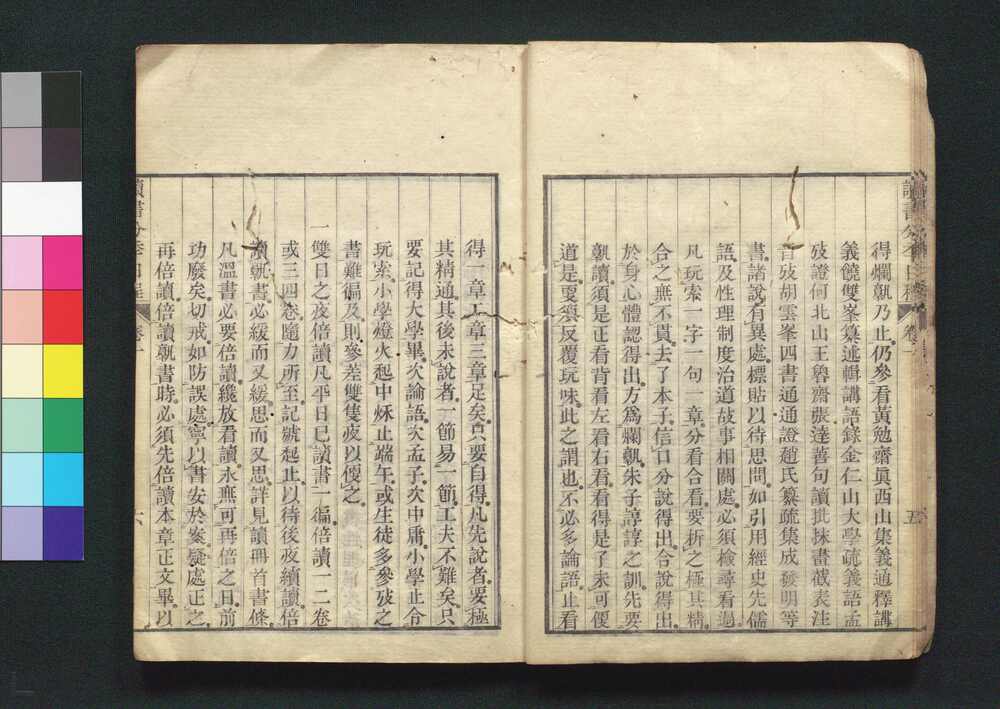 得爛孰乃止仍參看黃勉齋眞西山集義通釋講
義饒雙峯纂述輯講語錄金仁山大學疏義語孟
攷證何北山王魯齋張達善句讀批抹畫截表注
音攷胡雲峯四書通通證趙氏纂疏集成發明等
書諸說有異處標貼以待思問如引用經史先儒
語及性理制度治道故事相關處必須檢尋看過
凡玩索一字一句一章分看合看要析之極其精
合之無不貫去了本子信口分說得出合說得出
於身心體認得出方爲爛孰朱子諄諄之訓先要
孰讀須是正看背看左看右看看得是了未可便
道是更須反覆玩味此之謂也不必多論語止看
讀書分年日程 卷一 五
得一章二章三章足矣只要自得凡先說者要極
其精通其後未說者一節易一節工夫不難矣只
要記得大學畢次論語次孟子次中庸小學止令
玩索小學燈火起中秋止端午或生徒多參攷之
書難徧及則參差雙隻夜以便之
一雙日之夜倍讀凡平日已讀書一徧倍讀一二卷
或三四卷隨力所至記號起止以待後夜續讀倍
讀孰書必緩而又緩思而又思詳見讀冊首書條
凡溫書必要倍讀纔放看讀永無可再倍之日前
功廢矣切戒如防誤處寧以書安於案疑處正之
再倍讀倍讀孰書時必須先倍讀本章正文畢以
讀書分年日程 卷一 六